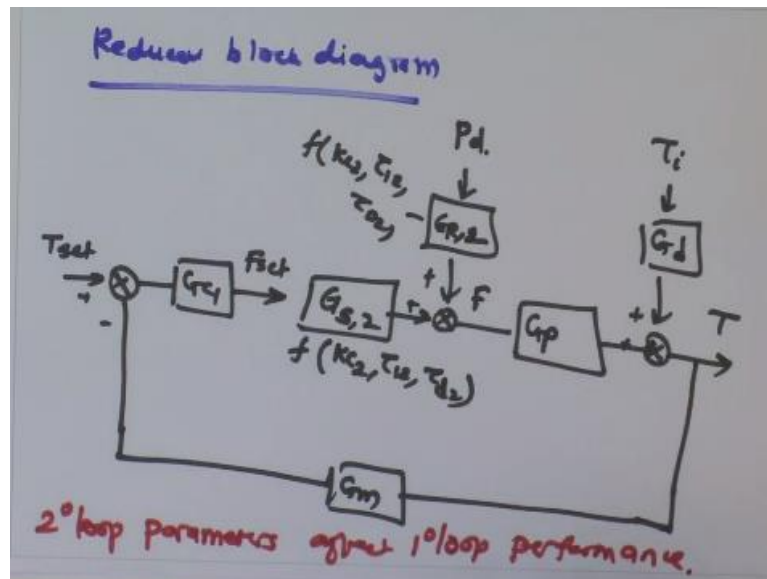 Reducer block diagram
Pd.
Ti
f(Kc2, τI2,
τD2, –
GR,2
Gd
Tset
Fset
+
+
F
T
+
-
Gc1
GS,2
+
Gp
+
f(Kc2, τI2, τd2)
Gm
2° loop parameters affect 1° loop performance.